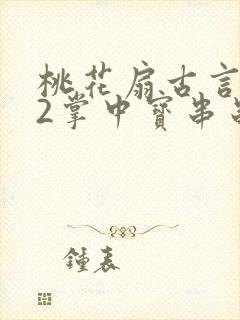 桃花扇古言
2掌中寳串
鍾表